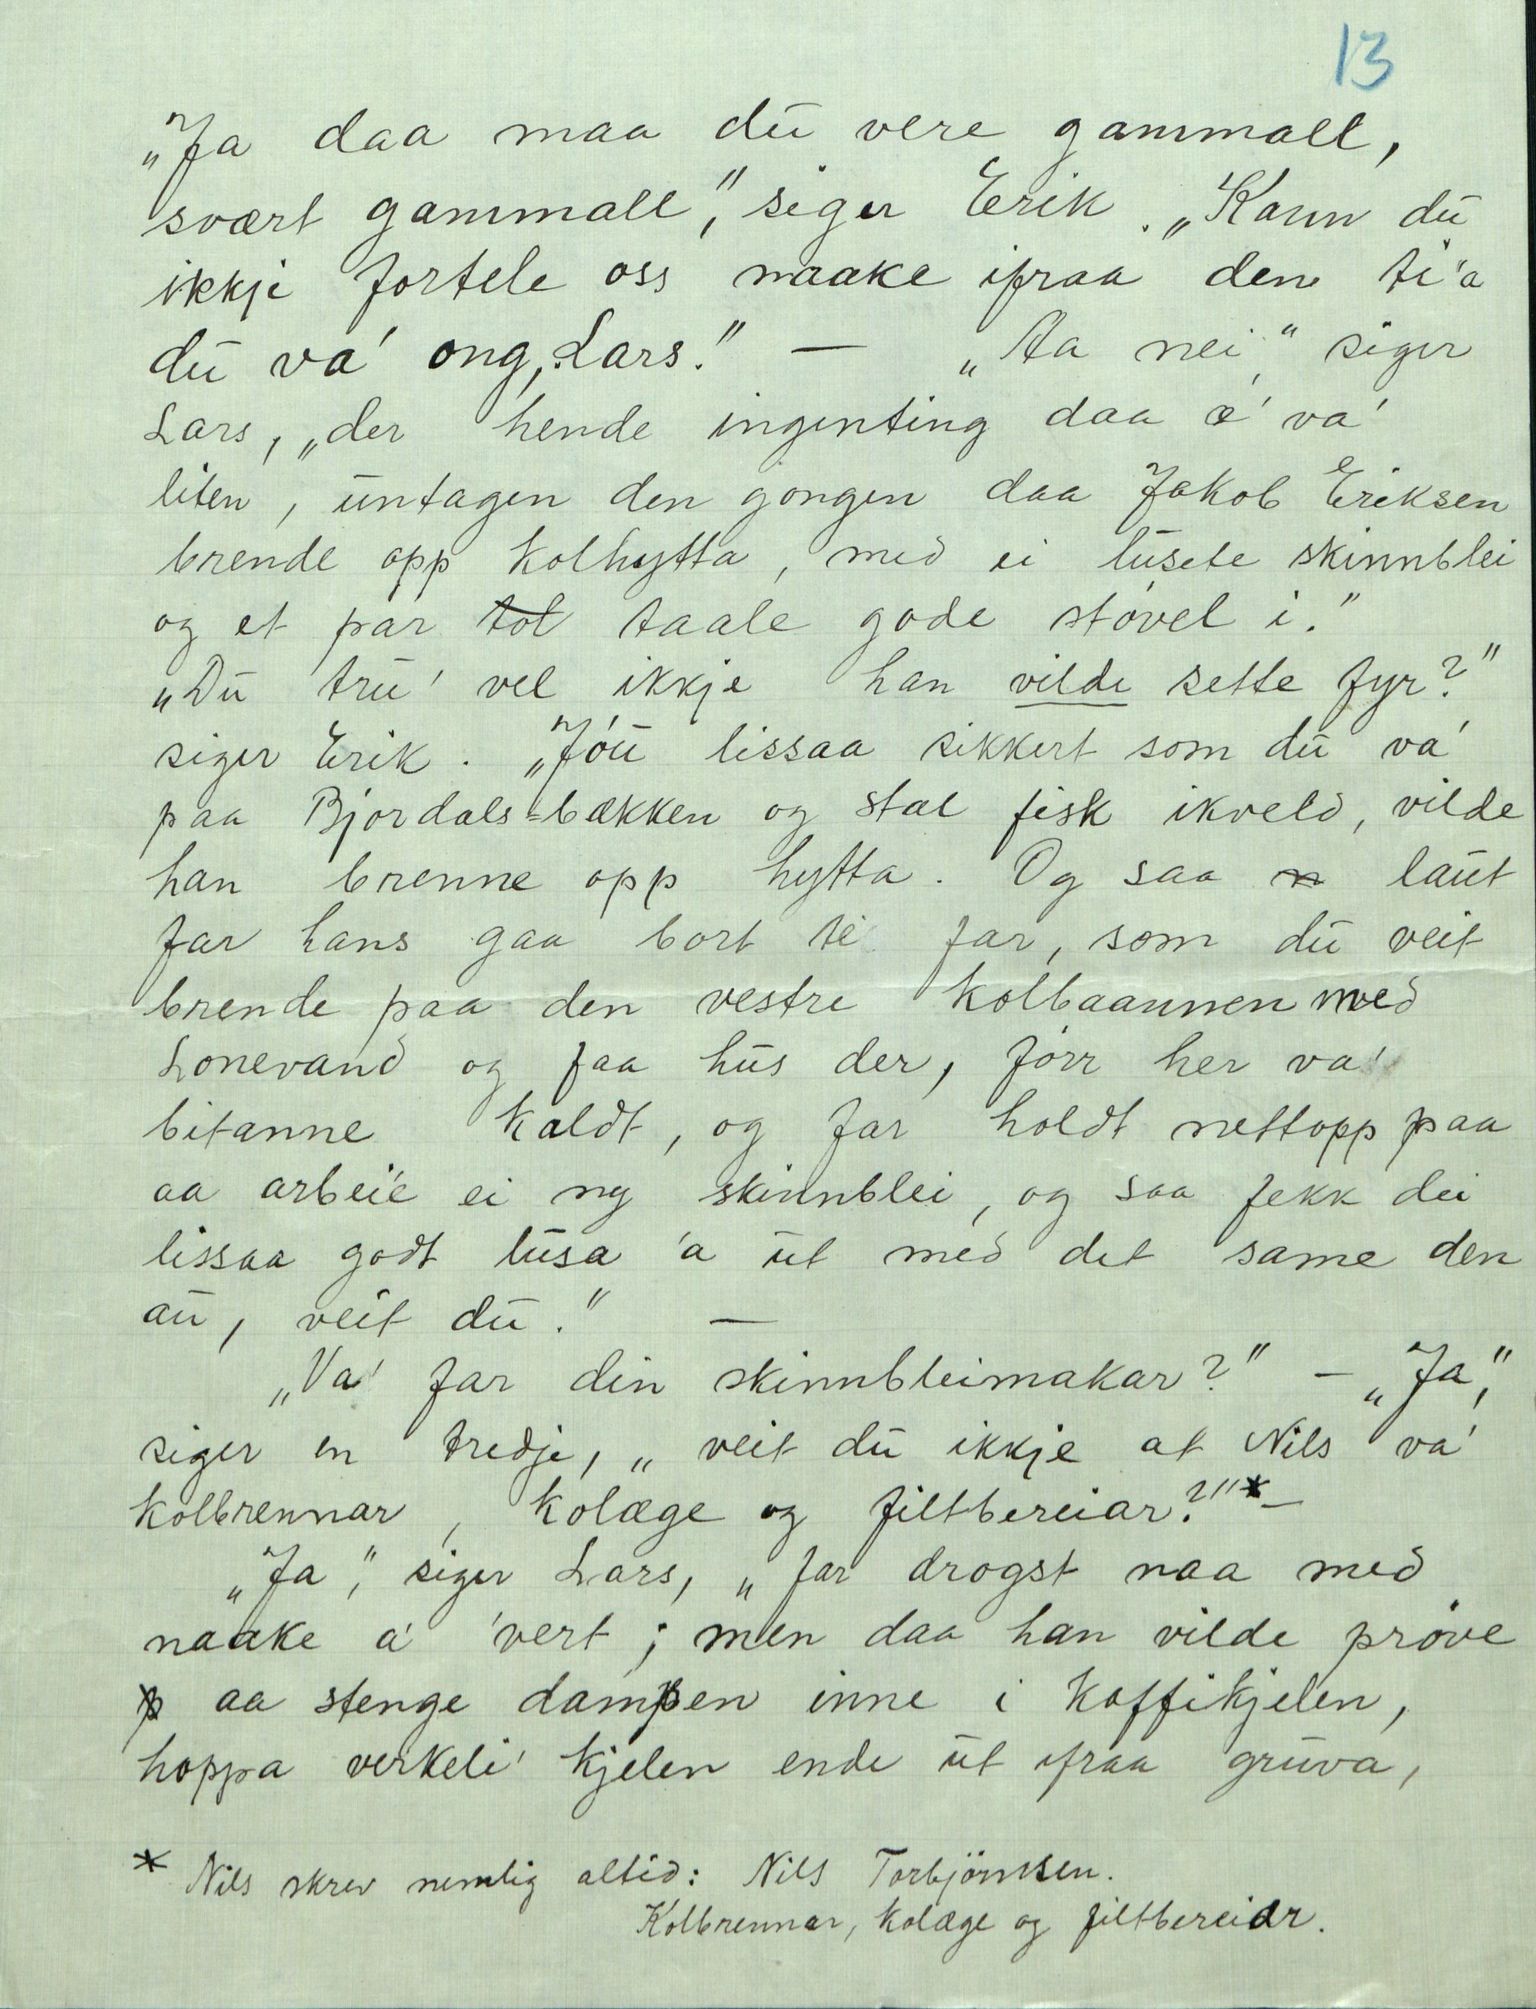 13
„Ja daa maa du vere gammall,
svært gammall," siger Erik. „Kann du
ikkje fortele oss naake ifraa den ti'a
du va' ong, Lars." — „Aa nei," siger
Lars, „der hende ingenting daa æ' va'
liten, untagen den gongen daa Jakob Eriksen
brende opp kolhytta, med ei lusete skinnblei
og et par tol taale gode støvel i."
„Du tru' vel ikkje han vilde sette fyr?"
siger Erik. „Jóu lissaa sikkert som du va'
paa Bjordals-bækken og stal fisk ikveld, vilde
han brenne opp hytta. Og saa n laut
far hans gaa bort te far, som du veit
brende paa den vestre kolbaannen med
Lonevand og faa hus der, førr her va'
bitanne kaldt, og far holdt nettopp paa
aa arbei'e ei ny skinnblei, og saa fekk dei
lissaa godt lusa 'a ut med det same den
au, veit du." —
„Va' far din skinnbleimakar?" — „Ja",
siger en tredje, „veit du ikkje at Nils va'
kolbrennar, kolæge og filtbereiar?"* —
„Ja," siger Lars, „far drogst naa med
naake a' 'vert; men daa han vilde prøve
p aa stenge dampen inne i kaffikjelen,
hoppa verkeli' kjelen ende ut ifraa gruva,
* Nils skrev nemlig altid: Nils Torbjörnsen.
Kolbrennar, kolæge og filtbereidr.